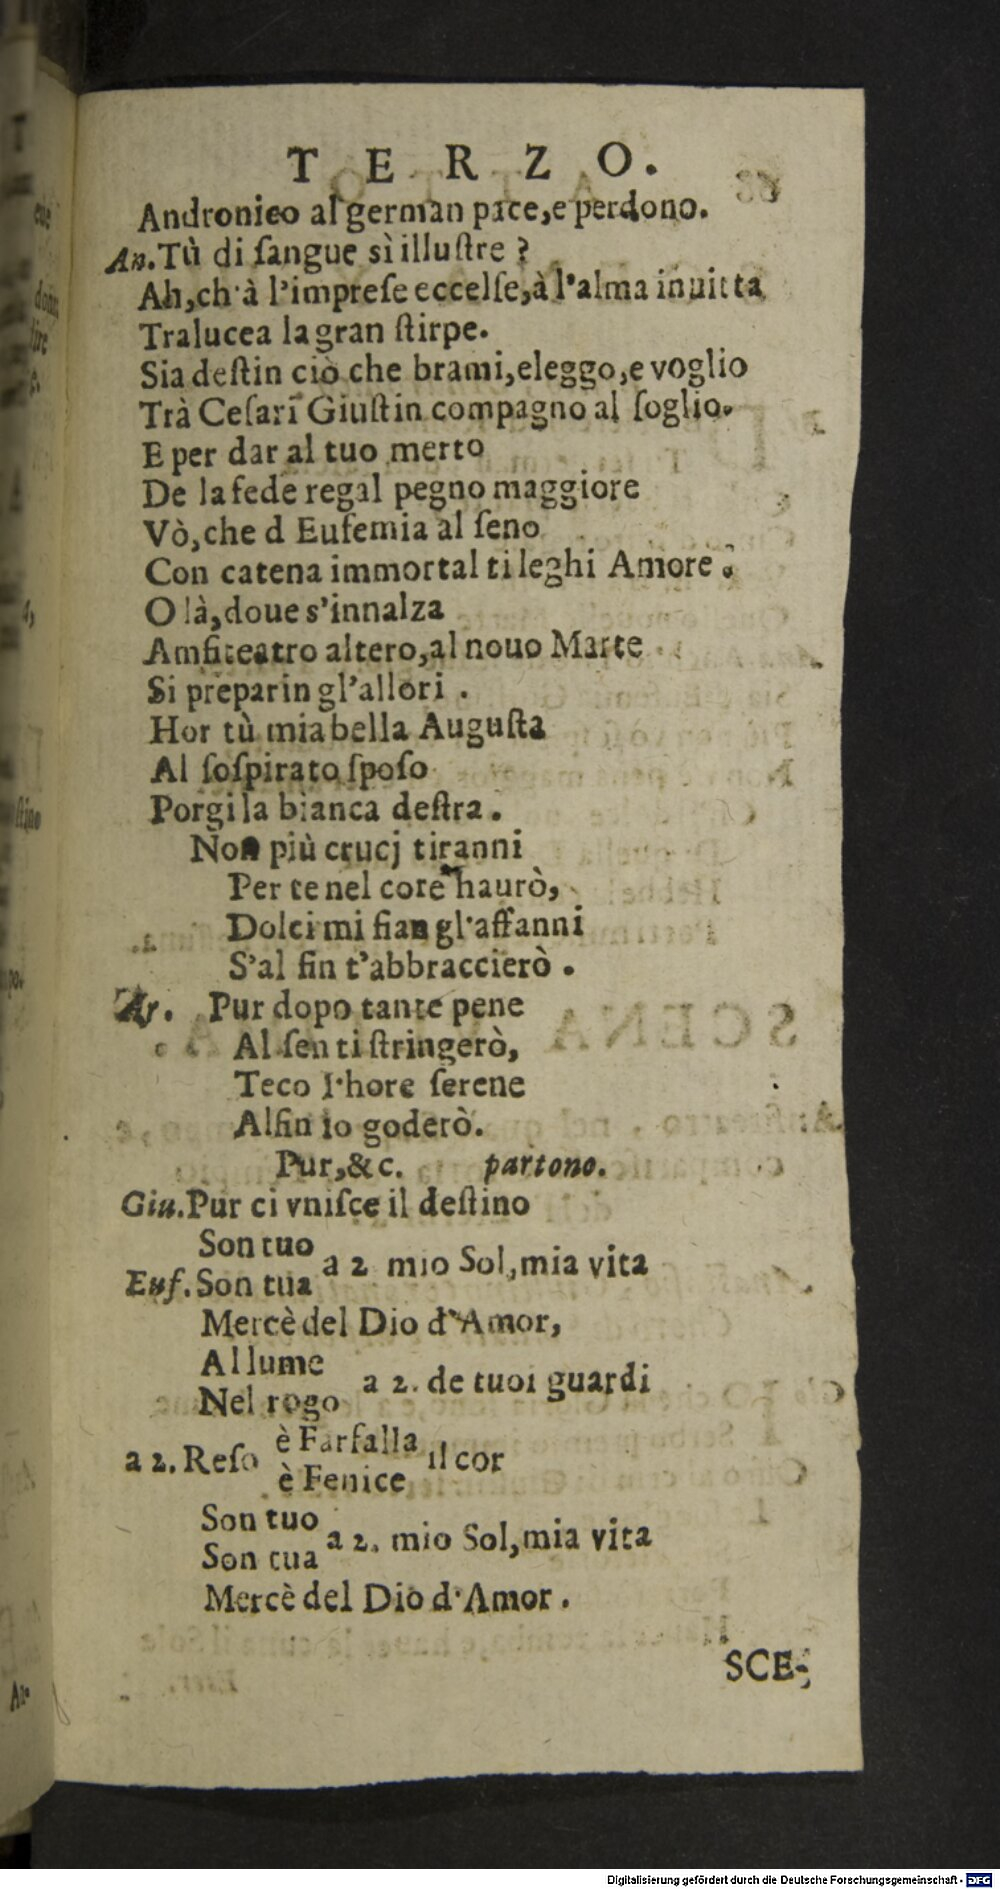 TERZO.
Andronico al german pace,e perdono.
An.Tù di ſangue sì illuſtre ?
Ah,ch'à l'impreſe eccelſe,à l'alma inuitta
Tralucea la gran ſtirpe.
Sia deſtin ciò che brami,eleggo,e voglio
Trà Ceſari Giuſtin compagno al ſoglio.
E per dar al tuo merto
De la fede regal pegno maggiore
Vò,che d Eufemia al ſeno
Con catena immortal ti leghi Amore.
O là,doue s'innalza
Amfiteatro altero,al nouo Marte
Si preparin gl'allori .
Hor tù mia bella Auguſta
Al ſoſpirato ſpoſo
Porgi la bianca deſtra.
Non più crucj tiranni
Per te nel core haurò,
Dolci mi fian gl'affanni
S'al fin t'abbraccierò .
Ar. Pur dopo tante pene
Al ſen ti ſtringerò,
Teco l'hore ſerene
Alfin io goderò.
Pur,&c. partono.
Giu.Pur ci vniſce il deſtino
Son tuo
a 2 mio Sol,mia vita
Euf.Son tua
Mercè del Dio d'Amor,
Al lume
a 2. de tuoi guardi
Nel rogo
è Farfalla
a 2. Reſo il cor
è Fenice
Son tuo
a 2. mio Sol,mia vita
Son tua
Mercè del Dio d'Amor .
SCE-
Digitalisierung gefördert durch die Deutsche Forschungsgemeinschaft - DFG